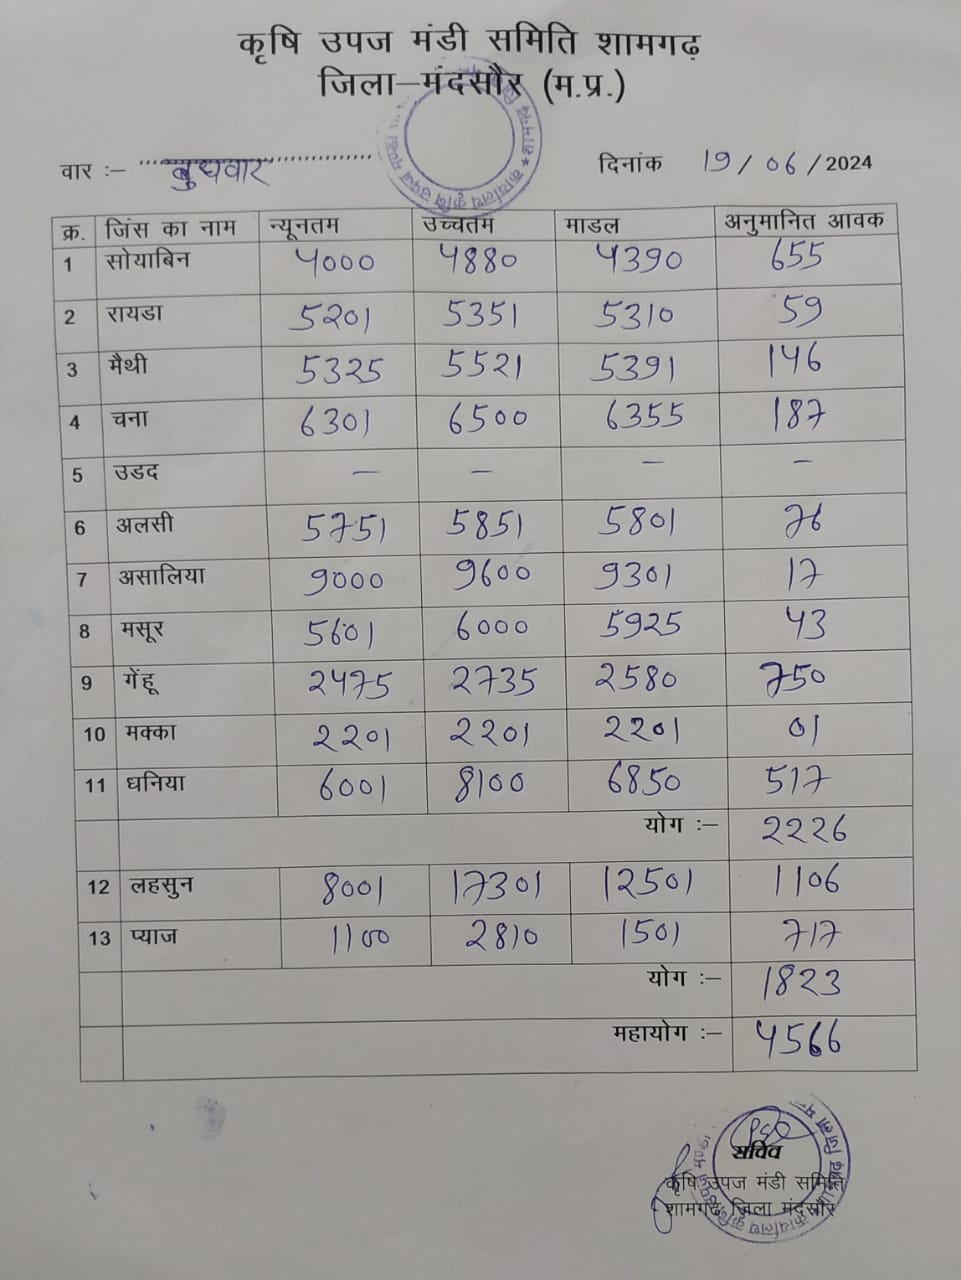 कृषि उपज मंडी समिति शामगढ़
जिला–मंदसौर (म.प्र.)
वार :– बुधवार दिनांक 19/06/2024
क्र. जिंस का नाम न्यूनतम उच्चतम माडल अनुमानित आवक
1 सोयाबिन 4000 4880 4390 655
2 रायडा 5201 5351 5310 59
3 मैथी 5325 5521 5391 146
4 चना 6301 6500 6355 187
5 उडद – – – –
6 अलसी 5751 5851 5801 76
7 असालिया 9000 9600 9301 17
8 मसूर 5601 6000 5925 43
9 गेंहू 2475 2735 2580 750
10 मक्का 2201 2201 2201 01
11 धनिया 6001 8100 6850 517
योग :– 2226
12 लहसुन 8001 17301 12501 1106
13 प्याज 1100 2810 1501 717
योग :– 1823
महायोग :– 4566
सचिव
कृषि उपज मंडी समिति
शामगढ़ जिला मंदसौर